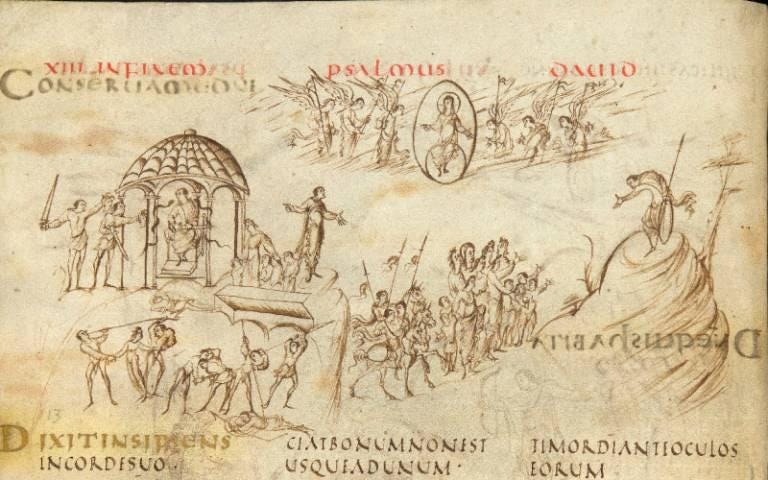 XIII INFINEM PSALMUS DAUID
CONSERUAMEDNI
DNEQUISHABITA
DIXITINSIPIENS
INCORDESUO·
CIATBONUMNONEST
USQUEADUNUM·
TIMORDIANTEOCULOS
EORUM
13